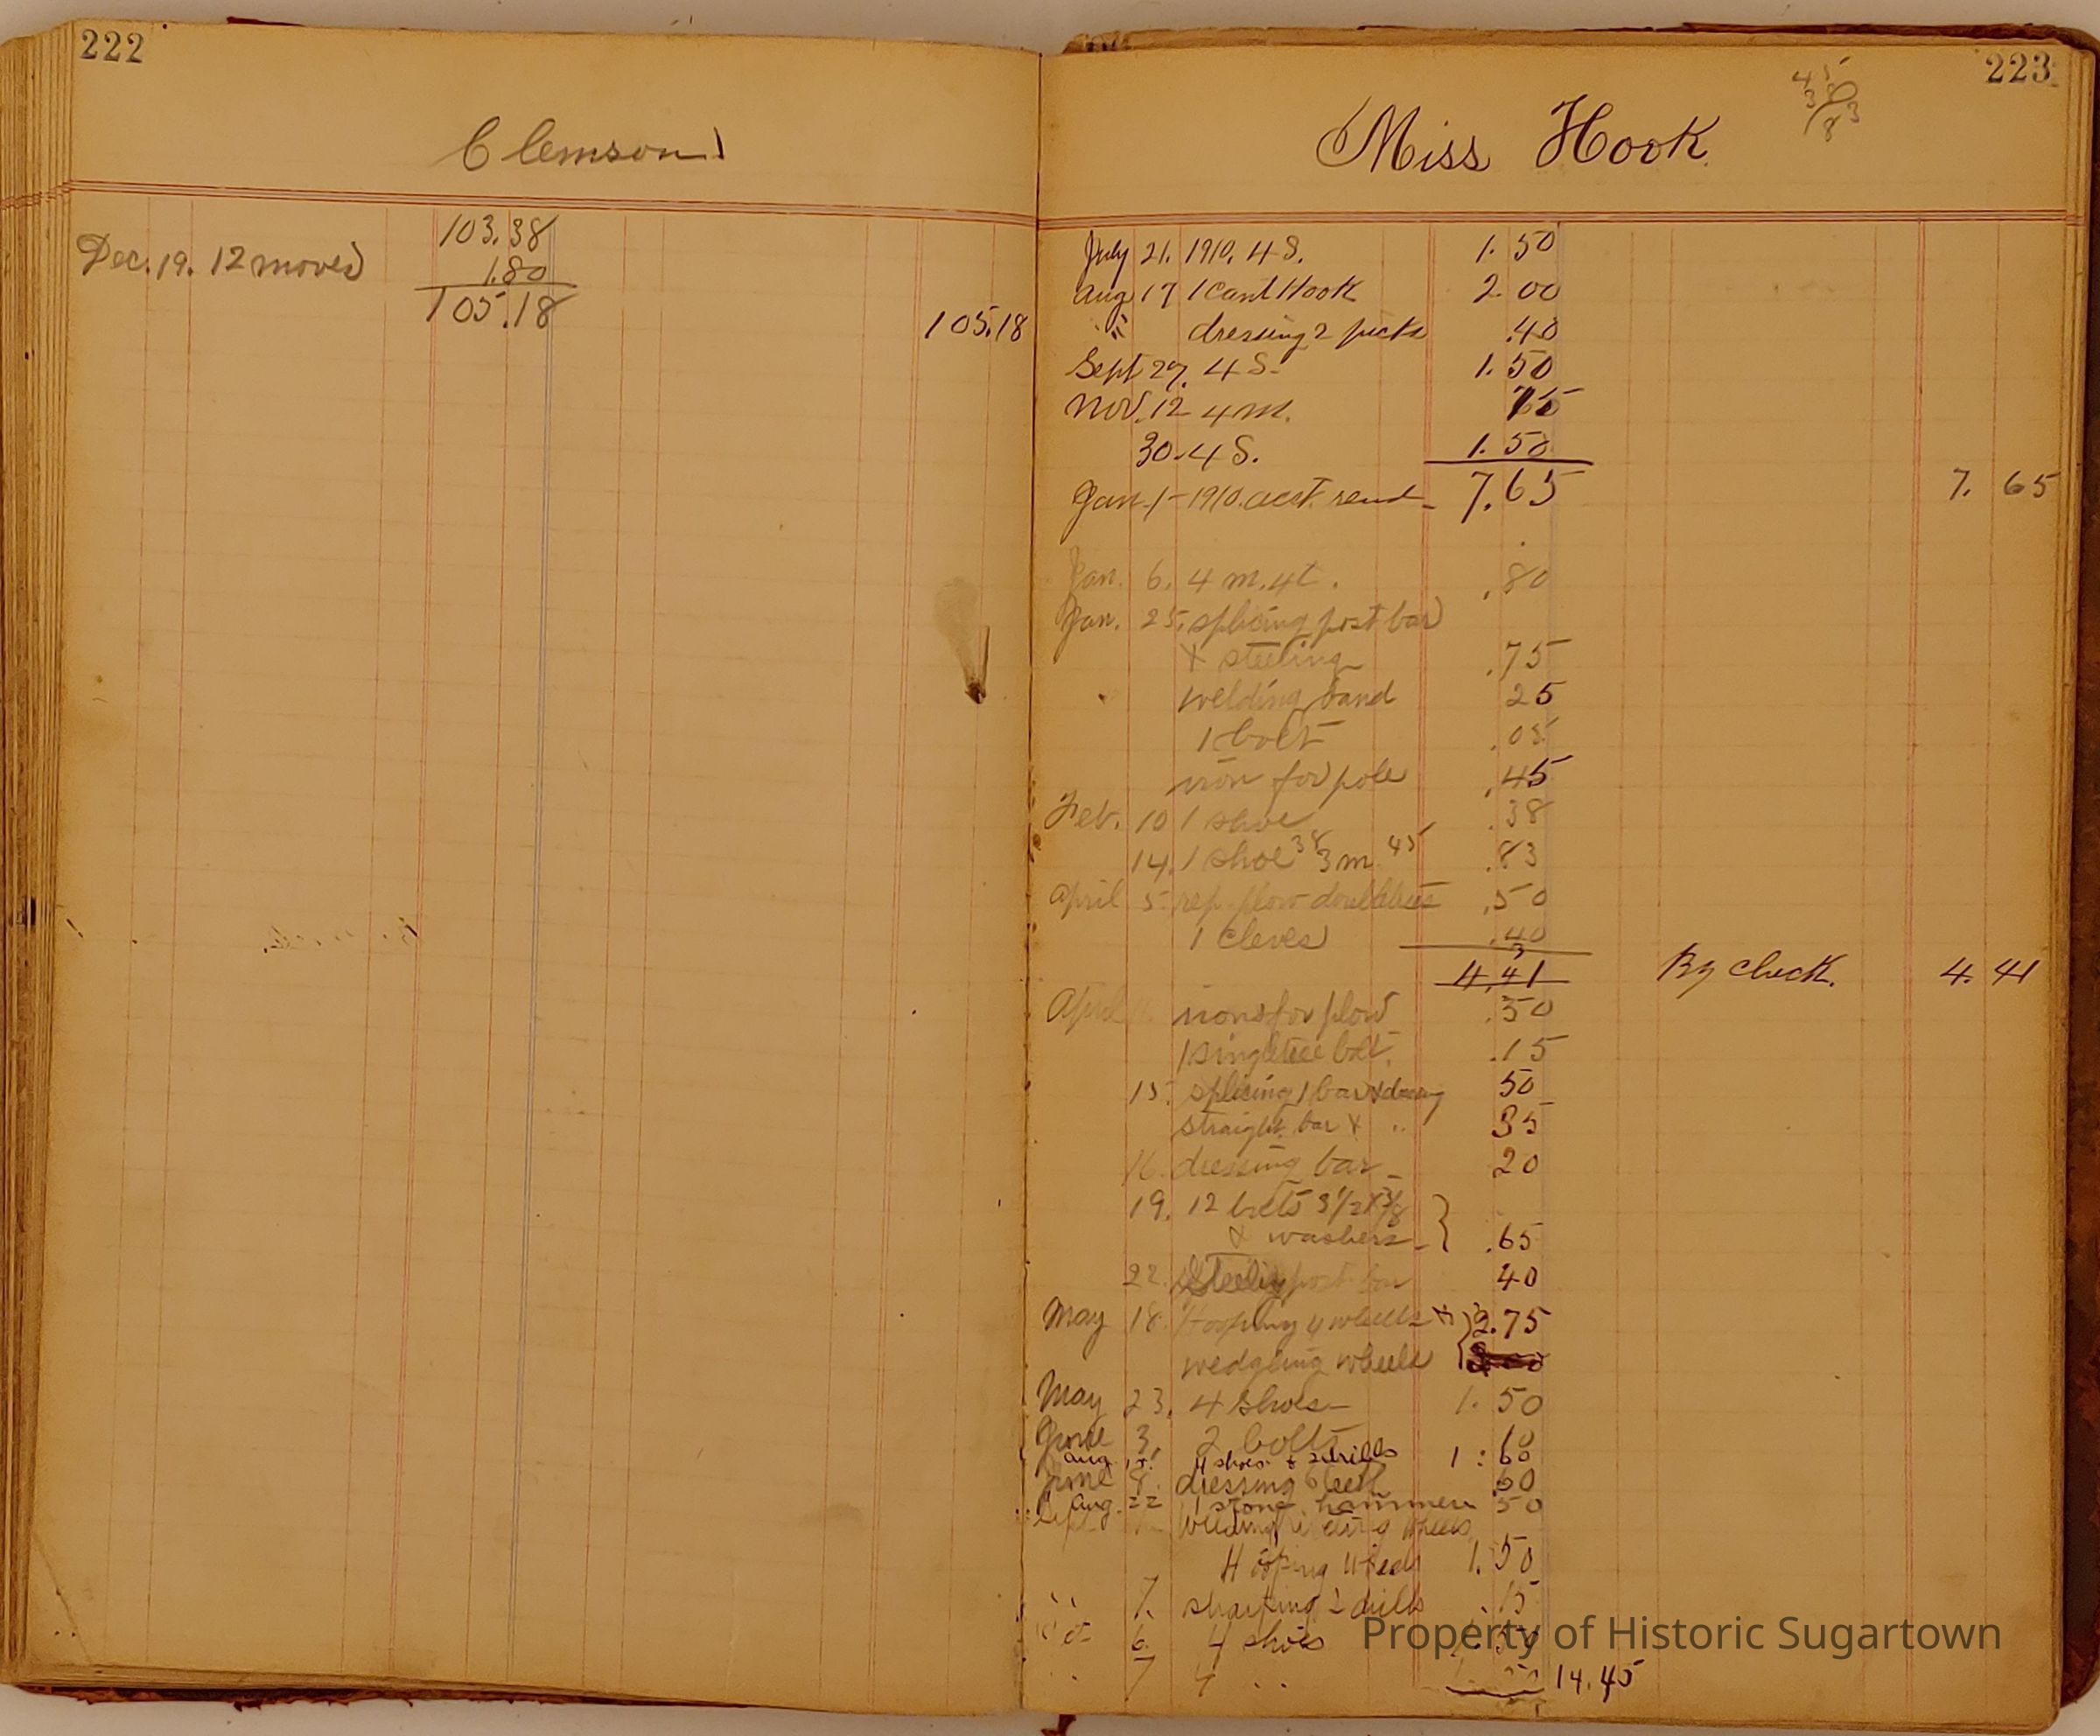 222
Clemson
103.38
Dec. 19. 12 moved 1.80
105.18
105.18
223
45
38
83
Miss Hook
July 21. 1910. 4 S. 1.50
Aug 17 1 Cant Hook 2 00
" dressing 2 picks .40
Sept 29. 4 S. 1.50
Nov. 12 4 m. 75
30. 4 S. 1.50
Jan. 1 - 1910. acct. rend 7.65 7. 65
Jan. 6. 4 m. 4 t. .80
Jan. 25. splicing post bar
& steeling .75
welding band 25
1 bolt .05
iron for pole .45
Feb. 10 1 shoe .38
14. 1 shoe 38 3 m. 45 .83
April 5. rep. plow doubletrees .50
1 cleves .40
4.41 By check. 4. 41
April irons for plow .50
1 singletree bolt. .15
15. splicing 1 bar & dressing 50
straight bar & " 35
16. dressing bar 20
19. 12 bolts 3 1/2 x 3/8
& washers .65
22. Steeling post bar 40
May 18. Hooping 4 wheels & 2.75
wedging wheels
May 23. 4 shoes 1.50
June 3. 2 bolts 10
Aug. 4 shoes & 2 drills 1:60
June 8. dressing 60
Aug. 22 1 stone hammer 50
wheels
Hooping wheels 1.50
" 7. sharping 2 drills .15
6. 4 shoes
" 7 4 " 14.45
Property of Historic Sugartown